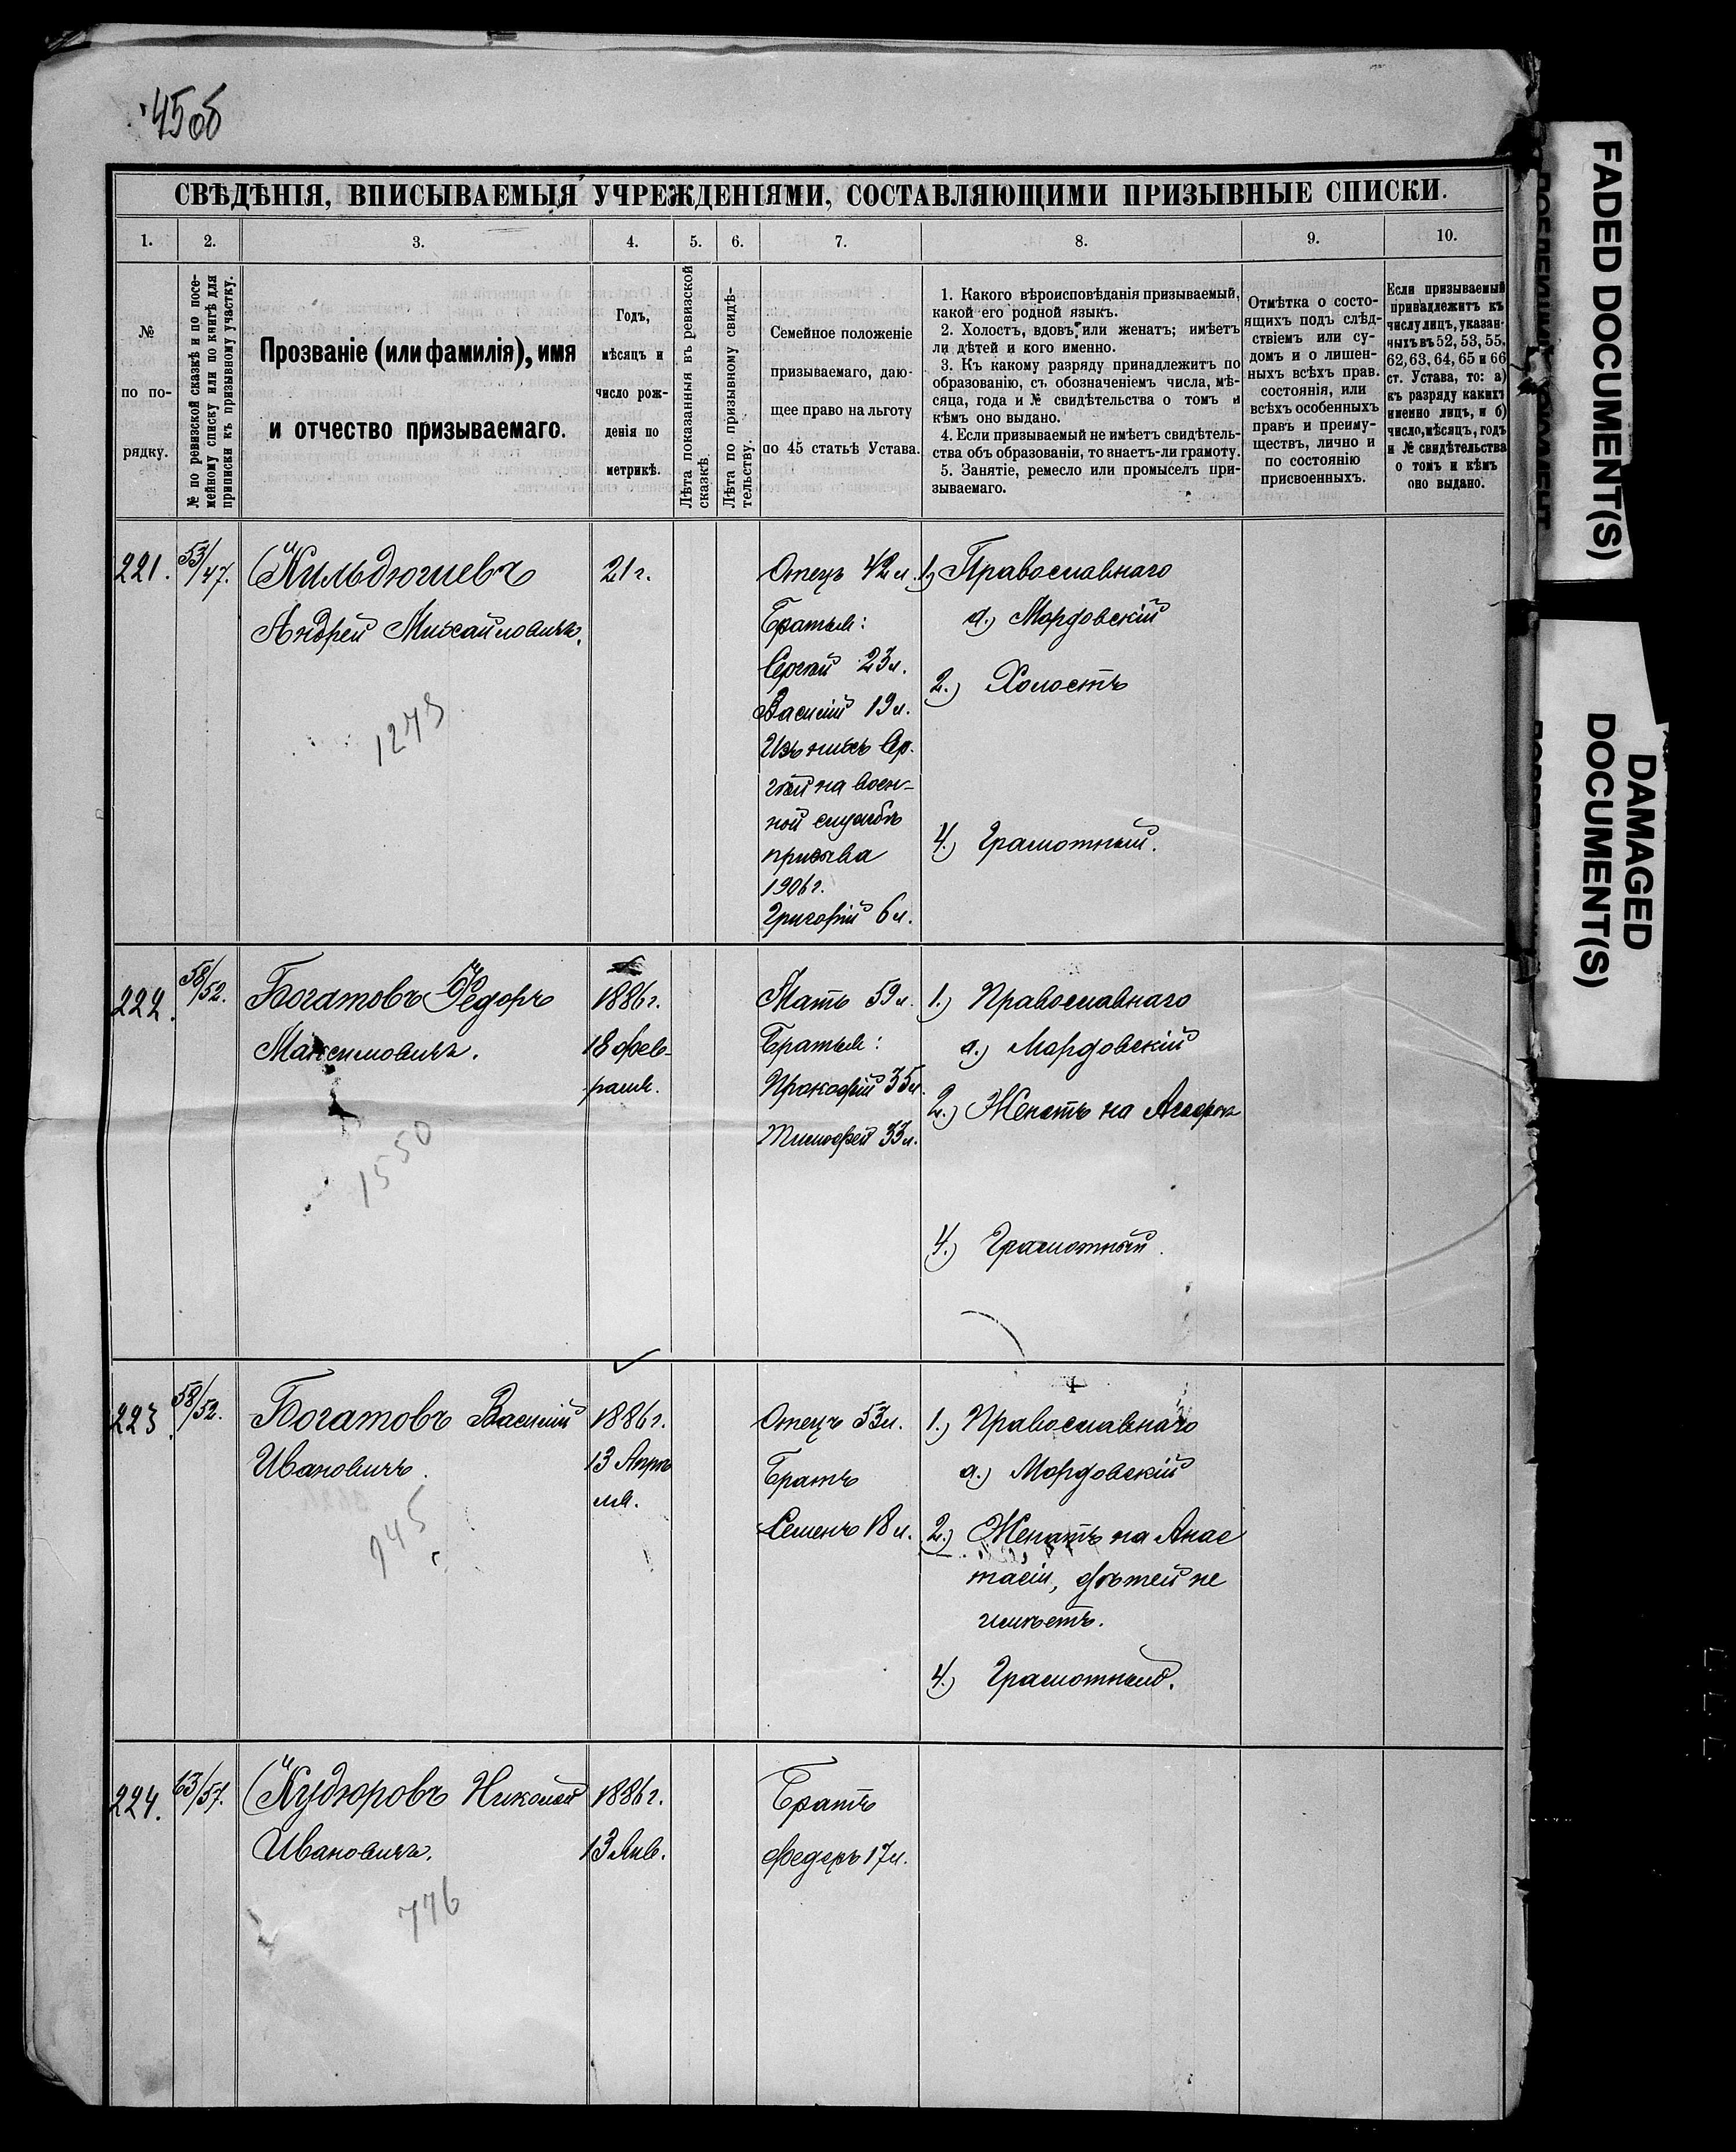 45об
СВѢДѢНІЯ, ВПИСЫВАЕМЫЯ УЧРЕЖДЕНІЯМИ, СОСТАВЛЯЮЩИМИ ПРИЗЫВНЫЕ СПИСКИ.
1.
2.
3.
4.
5.
6.
7.
8.
9.
10.
№
по по-
рядку.
№ по ревизской сказкѣ и по посе-
мейному списку или по книгѣ для
приписки къ призывному участку.
Прозваніе (или фамилія), имя
и отчество призываемаго.
Годъ,
мѣсяцъ и
число рож-
денія по
метрикѣ.
Лѣта показанныя въ ревизской
сказкѣ.
Лѣта по призывному свидѣ-
тельству.
Семейное положеніе
призываемаго, даю-
щее право на льготу
по 45 статьѣ Устава.
1. Какого вѣроисповѣданія призываемый,
какой его родной языкъ.
2. Холостъ, вдовъ, или женатъ; имѣетъ
ли дѣтей и кого именно.
3. Къ какому разряду принадлежитъ по
образованію, съ обозначеніемъ числа, мѣ-
сяца, года и № свидѣтельства о томъ и
кѣмъ оно выдано.
4. Если призываемый не имѣетъ свидѣтель-
ства объ образованіи, то знаетъ-ли грамоту.
5. Занятіе, ремесло или промыселъ при-
зываемаго.
Отмѣтка о состо-
ящихъ подъ слѣд-
ствіемъ или су-
домъ и о лишен-
ныхъ всѣхъ прав.
состоянія, или
всѣхъ особенныхъ
правъ и преиму-
ществъ, лично и
по состоянію
присвоенныхъ.
Если призываемый
принадлежитъ къ
числу лицъ, указан-
ныхъ въ 52, 53, 55,
62, 63, 64, 65 и 66
ст. Устава, то: а)
къ разряду какихъ
именно лицъ, и б)
число, мѣсяцъ, годъ
и № свидѣтельства
о томъ и кѣмъ
оно выдано.
221.
53/47.
Кильдюшевъ
Андрей Михайловичъ.
1273
21 г.
Отецъ 42 л.
Братья:
Сергѣй 23 л.
Василій 19 л.
Изъ нихъ Сер-
гѣй на воен-
ной службѣ
призыва
1906 г.
Григорій 6 л.
1.) Православнаго
а.) Мордовскій
2.) Холостъ
4.) Грамотный.
222.
58/52.
Богатовъ Федоръ
Максимовичъ.
1550
1886 г.
18 Фев-
раля.
Мать 59 л.
Братья:
Прокофій 35 л.
Тимофей 33 л.
1.) Православнаго
а.) Мордовскій
2.) Женатъ на Агафьѣ
4.) Грамотный.
223.
58/52.
Богатовъ Василій
Ивановичъ.
945
1886 г.
13 Апрѣ
ля.
Отецъ 53 л.
Братъ
Семенъ 18 л.
1.) Православнаго
а.) Мордовскій
2.) Женатъ на Анас
тасіи, дѣтей не
имѣетъ.
4.) Грамотный.
224.
63/57.
Кудюровъ Николай
Ивановичъ.
776
1886 г.
13 Янв.
Братъ
Федеръ 17 л.
FADED DOCUMENT(S)
DAMAGED
DOCUMENT(S)